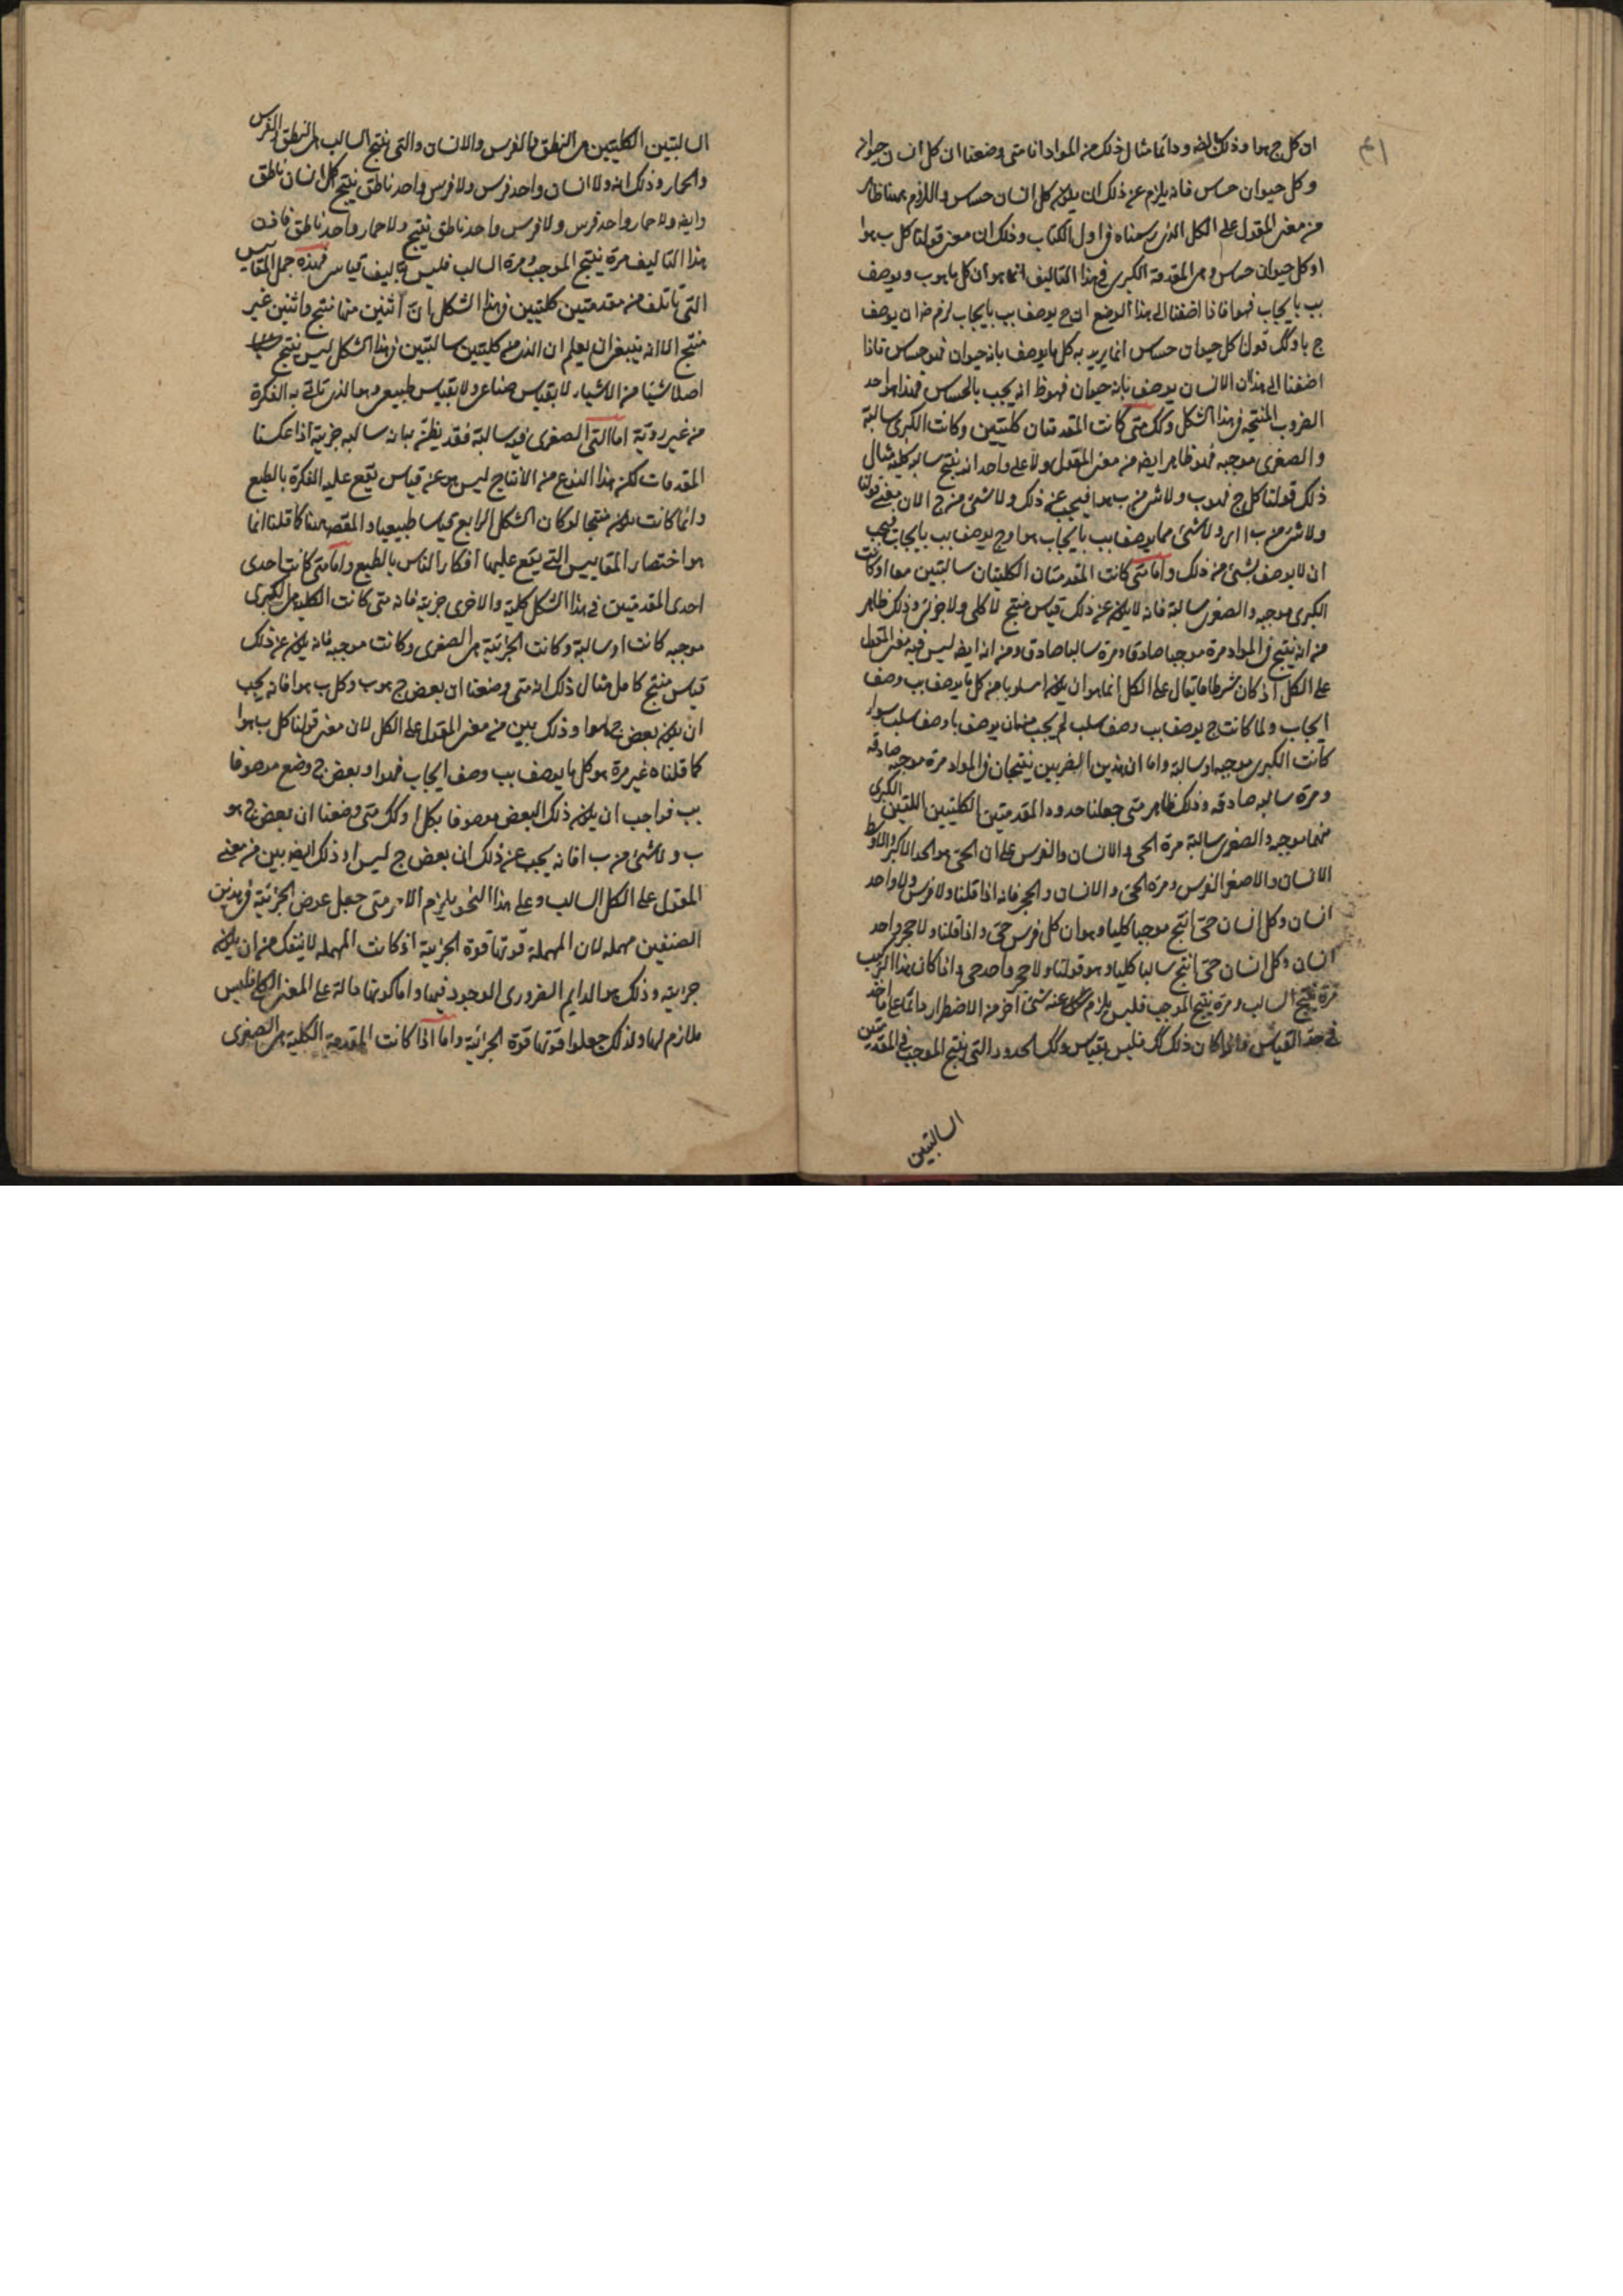 ان كل ج هو ا وذلك ايضا ودائما مثال ذلك من المواد انا متى وضعنا ان كل انسان حيوان
وكل حيوان حساس فانه يلزم عن ذلك ان يكون كل انسان حساس واللزوم ههنا ظاهر
من معنى المقول على الكل الذي رسمناه في اول الكتاب وذلك ان معنى قولنا كل ب هو ا
او كل حيوان حساس وهى المقدمة الكبرى في هذا التاليف انما هو ان كل ما هو ب ويوصف
بب بايجاب فهو ا فاذا اضفنا الى هذا الوضع ان ج يوصف بب بايجاب لزم ضرورة ان يوصف
ج با وكك قولنا كل حيوان حساس انما يريد به كل ما يوصف بانه حيوان فهو حساس فاذا
اضفنا الى هذا ان الانسان يوصف بانه حيوان فهو ظ انه يجب بالحساس فهذا هو احد
الضروب المنتجه في هذا الشكل وكك متى كانت المقدمتان كليتين وكانت الكبرى سالبة
والصغرى موجبه فهو ظاهر ايضا من معنى المقول ولا على واحد انه ينتج سالبه كليه مثال
ذلك قولنا كل ج فهو ب ولا شئ من ب هو ا فيجب عن ذلك ولا شئ من ج ا لان معنى قولنا
ولا شئ من ب ا اى ولا شئ مما يوصف بب بايجاب هو ا وج يوصف بب بايجاب فيجب
ان لا يوصف بشئ من ذلك واما متى كانت المقدمتان الكليتان سالبتين معا او كانت
الكبرى موجبه والصغرى سالبة فانه لا يكون عن ذلك قياس منتج لا كلى ولا جزئى وذلك ظاهر
من انه ينتج في المواد مرة موجبا صادقا ومرة سالبا صادق ومن انه ايضا ليس فيه معنى المقول
على الكل اذ كان شرط ما يقال على الكل انما هو ان يكون ا مسلوبا من كل ما يوصف بب وصف
ايجاب ولما كانت ج يوصف بب وصف سلب لم يجب ضرورة ان يوصف با وصف سلب سواء
كانت الكبرى موجبه او سالبة واما ان هذين الضربين ينتجان في المواد مرة موجبه صادقه
ومرة سالبه صادقه وذلك ظاهر متى جعلنا حدود المقدمتين الكليتين اللتين الكبرى
منهما موجبه والصغرى سالبة مرة الحى والانسان والفرس على ان الحى هو الحد الاكبر والاوسط
الانسان والاصغر الفرس ومرة الحى والانسان والحجر فانه اذا قلنا ولا فرس ولا واحد
انسان وكل انسان حى انتج موجبا كليا وهو ان كل فرس حى واذا قلنا ولا حجر واحد
انسان وكل انسان حى انتج سالبا كليا وهو قولنا ولا حجر واحد حى واذا كان هذا التركيب
مرة ينتج السالب ومرة ينتج الموجب فليس يلزم عنه شئ اخر من الاضطرار دائما على ما اخذ
في حد القياس واذا كان ذلك كك فليس بقياس وكك الحدود التى ينتج الموجب في المقدمتين
السالبتين
السالبتين الكليتين هى النطق والفرس والانسان والتى ينتج السالب هى النطق والفرس
والحمار وذلك انه ولا انسان واحد فرس ولا فرس واحد ناطق ينتج كل انسان ناطق
وايضا ولا حمار واحد فرس ولا فرس واحد ناطق ينتج ولا حمار واحد ناطق فاذن
هذا التاليف مرة ينتج الموجب ومرة السالب فليس تاليف قياس فهذه جمل المقاييس
التى تاتلف من مقدمتين كليتين في هذا الشكل اثنين منها منتج واثنين غير
منتج الا انه ينبغى ان يعلم ان الذى من كليتين سالبتين في هذا الشكل ليس ينتج
اصلا شيئا من الاشياء لا بقياس صناعى ولا بقياس طبيعى وهو الذى تاتى به الفكرة
من غير روية اما التى الصغرى فيه سالبة فقد يظن بها انه سالبه جزيية اذا عكسنا
المقدمات لكن هذا النوع من الانتاج ليس هو عن قياس تقع عليه الفكرة بالطبع
وانما كانت يكون منتجا لو كان الشكل الرابع قياسا طبيعيا والمقصد ههنا كما قلنا انما
هو احتصار المقاييس التى يقع عليها افكار الناس بالطبع واما متى كانت احدى
احدى المقدمتين في هذا الشكل كلية والاخرى جزيية فانه متى كانت الكليه هى الكبرى
موجبه كانت او سالبة وكانت الجزئية هى الصغرى وكانت موجبه فانه يكون عن ذلك
قياس منتج كامل مثال ذلك انه متى وضعنا ان بعض ج هو ب وكل ب هو ا فانه يجب
ان يكون بعض ج هو ا وذلك بين من معنى المقول على الكل لان معنى قولنا كل ب هو ا
كما قلناه غير مرة هو كل ما يوصف بب وصف ايجاب فهو ا وبعض ج وضع موصوفا
بب فواجب ان يكون ذلك البعض موصوفا بكل ا وكك متى وضعنا ان بعض ج هو
ب ولا شئ من ب ا فانه يجب عن ذلك ان بعض ج ليس ا وذلك ايضا بين من معنى
المقول على الكل السالب وعلى هذا النحو يلزم الامر متى جعل عوض الجزئية في هذين
الصنفين مهمله لان المهملة قوتها قوة الجزيية اذ كانت المهمله لا ينفك من ان يكون
جزيية وذلك هو الدايم الضرورى الوجود فيها واما كونها دالة على المعنى الكلى فليس
ملازم لها ولذلك جعلوا قوتها قوة الجزئية واما اذا كانت المقدمة الكلية هى الصغرى